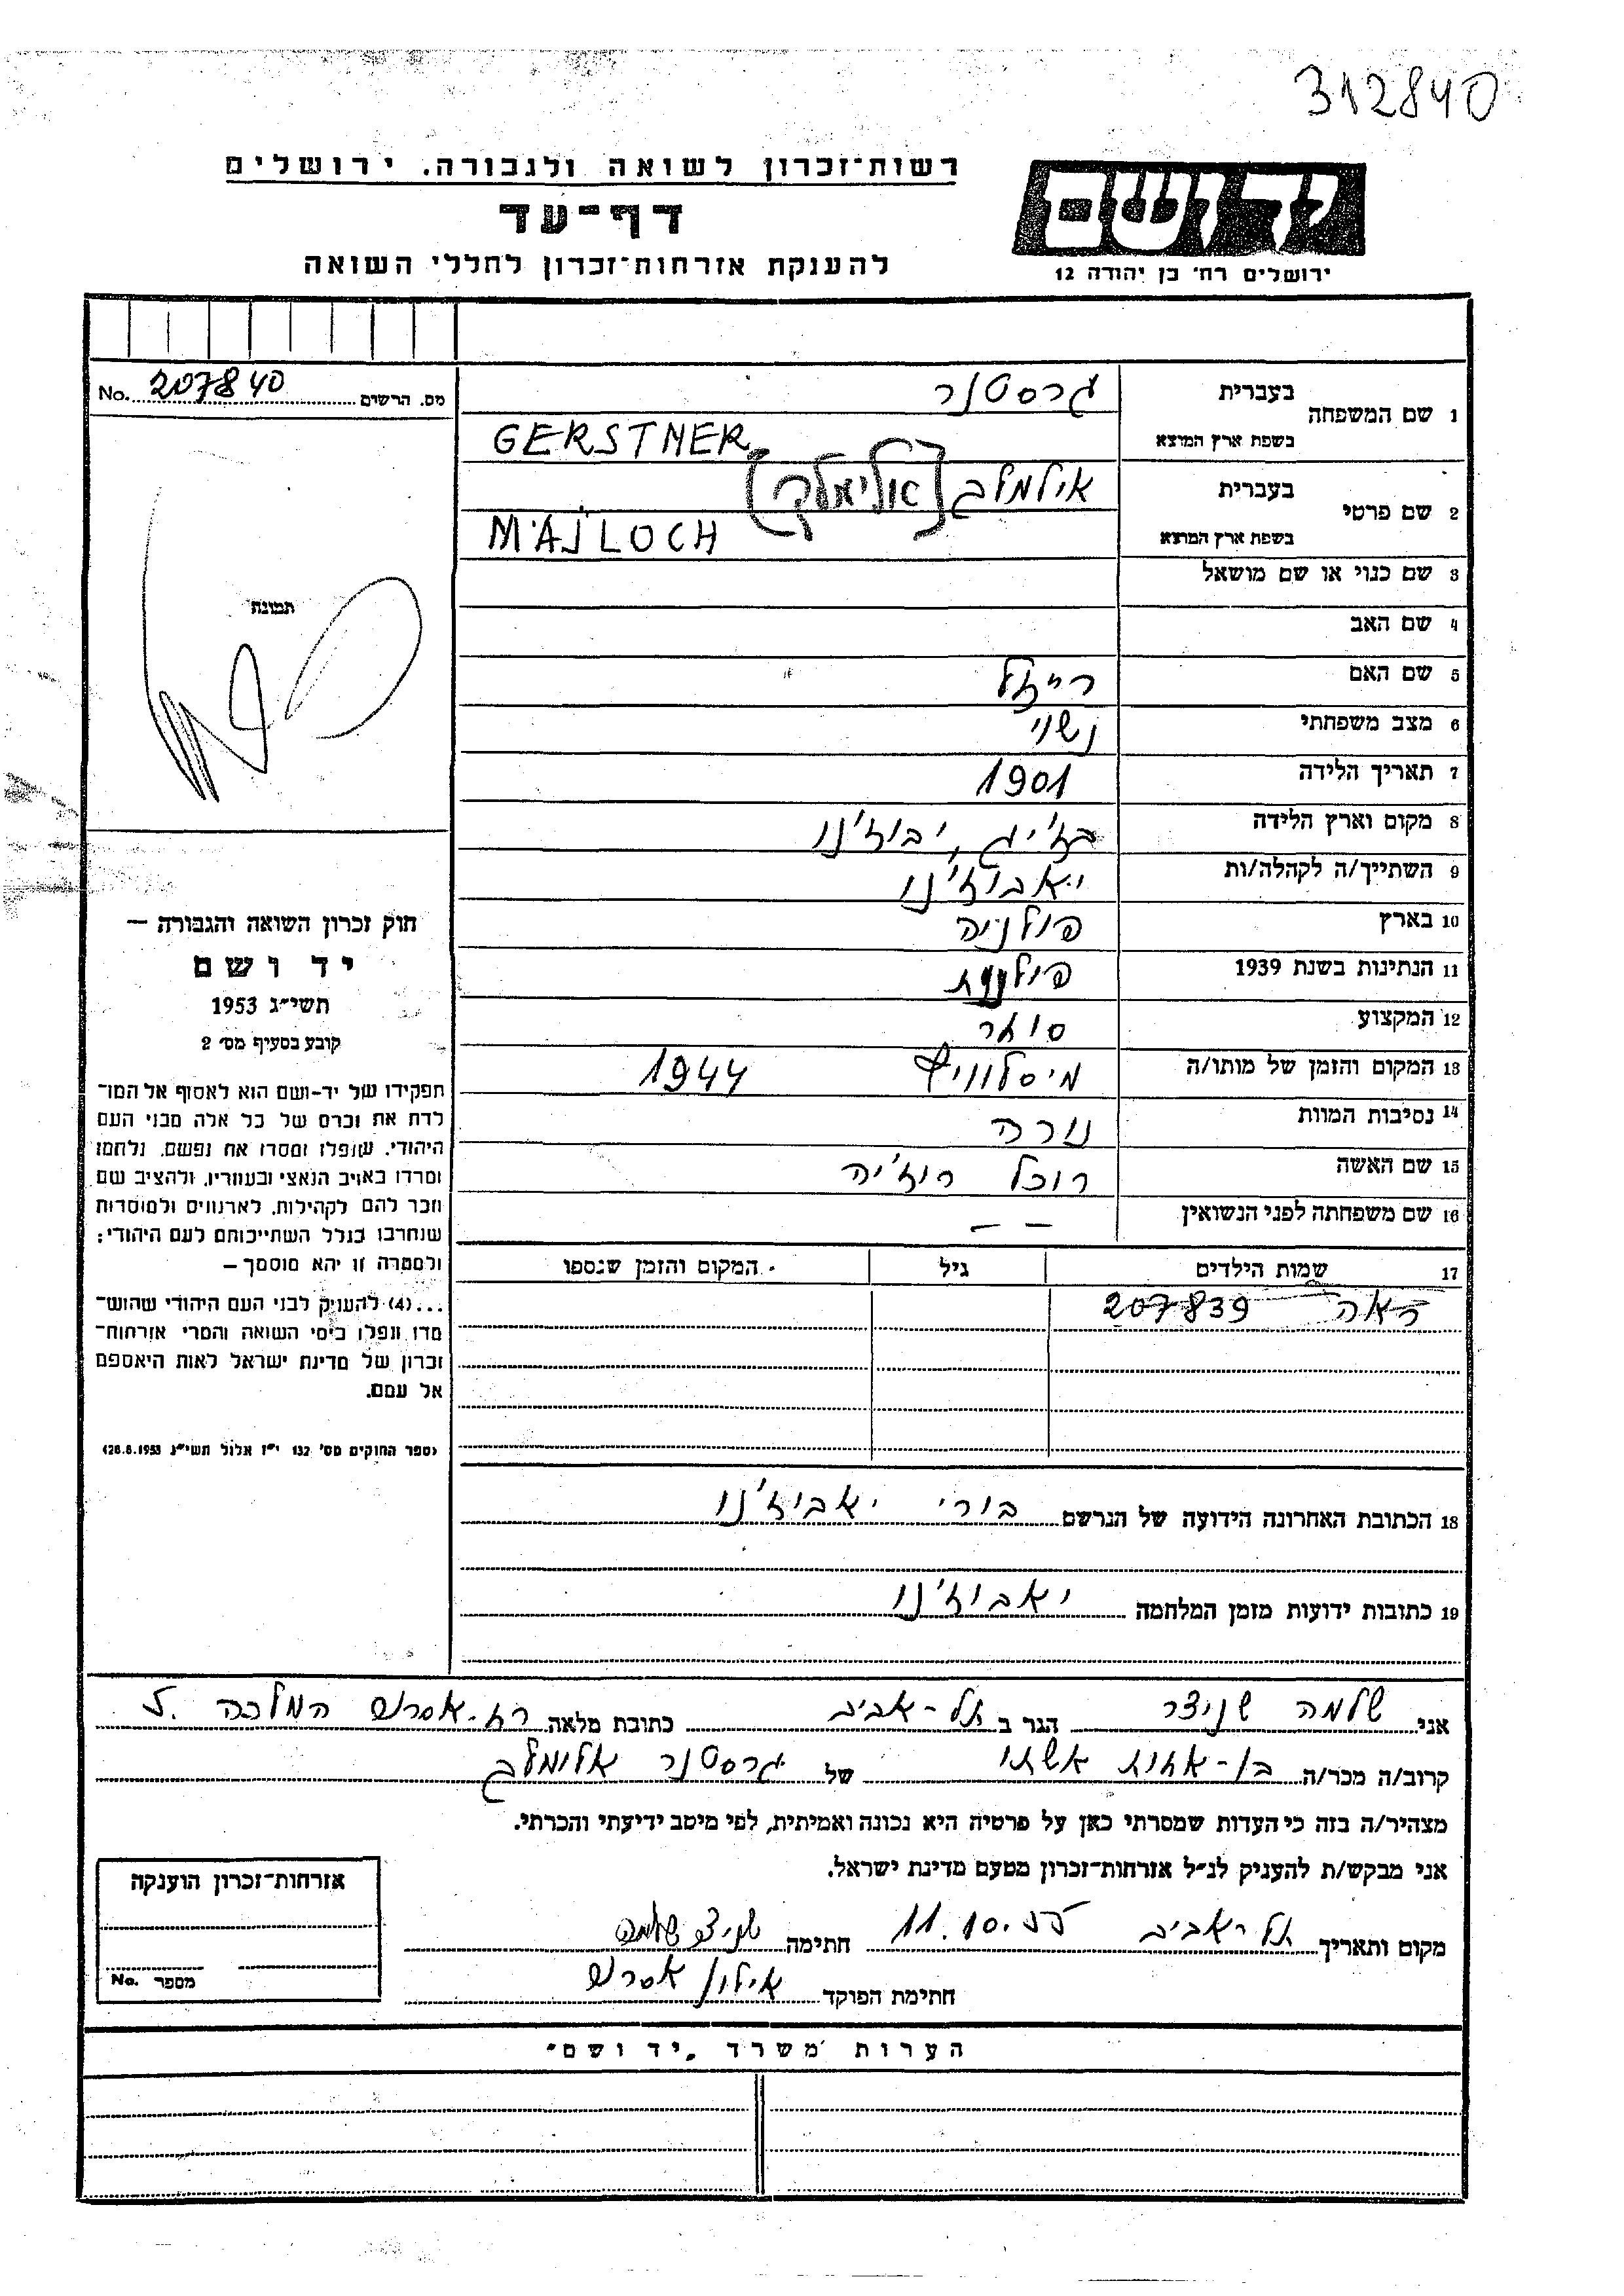 312840
רשות־זכרון לשואה ולגבורה. ירושלים
דף־עד
להענקת אזרחות־זכרון לחללי השואה
יד ושם
ירושלים רח' בן יהודה 12
מס. הרשים No. 207840
תמונה
חוק זכרון השואה והגבורה —
יד ושם
תשי״ג 1953
קובע בסעיף מס׳ 2
תפקידו של יד-ושם הוא לאסוף אל המו־
לדת את זכרם של כל אלה מבני העם
היהודי, שנפלו ומסרו את נפשם, נלחמו
ומרדו באויב הנאצי ובעוזריו, ולהציב שם
וזכר להם לקהילות, לארגונים ולמוסדות
שנחרבו בגלל השתייכותם לעם היהודי;
ולמטרה זו יהא מוסמך —
...(4) להעניק לבני העם היהודי שהוש־
מדו ונפלו בימי השואה והמרי אזרחות־
זכרון של מדינת ישראל לאות היאספם
אל עמם.
(ספר החוקים מס׳ 132 י״ז אלול תשי״ג 28.8.1953)
1 שם המשפחה בעברית גרסטנר
בשפת ארץ המוצא GERSTNER
2 שם פרטי בעברית אילמלב [אלימלך]
בשפת ארץ המוצא MAJLOCH
3 שם כנוי או שם מושאל
4 שם האב
5 שם האם רייזל
6 מצב משפחתי נשוי
7 תאריך הלידה 1901
8 מקום וארץ הלידה יבוז'נו
9 השתייך/ה לקהלה/ות יאבוז'נו
10 בארץ פולניה
11 הנתינות בשנת 1939 פולנית
12 המקצוע סוחר
13 המקום והזמן של מותו/ה מיסלוויץ 1944
14 נסיבות המוות נורה
15 שם האשה רוכל רוז'יה
16 שם משפחתה לפני הנשואין — —
17 שמות הילדים גיל המקום והזמן שנספו
207839
18 הכתובת האחרונה הידועה של הנרשם בורי יאבוז'נו
19 כתובות ידועות מזמן המלחמה יאבוז'נו
אני שלמה שניצר הגר ב תל-אביב כתובת מלאה רח. אסתר המלכה 5
קרוב/ה מכר/ה בן-אחות אשתו של גרסטנר אלימלב
מצהיר/ה בזה כי העדות שמסרתי כאן על פרטיה היא נכונה ואמיתית, לפי מיטב ידיעתי והכרתי.
אני מבקש/ת להעניק לנ״ל אזרחות־זכרון מטעם מדינת ישראל.
מקום ותאריך תל-אביב 11.10.55 חתימה שניצר שלמה
חתימת הפוקד אילון אסתר
אזרחות־זכרון הוענקה
מספר No.
הערות משרד „יד ושם״